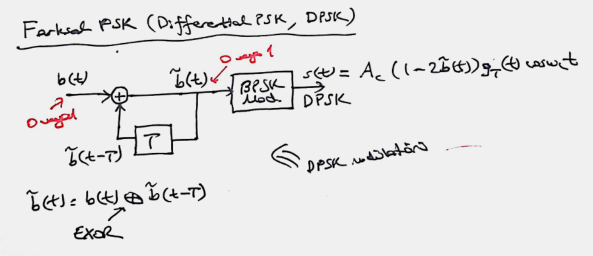 Farksal PSK (Differential PSK, DPSK)
0 veya 1
b(t)
0 veya 1
b̃(t)
BPSK Mod.
s(t) = A_c (1-2b̃(t)) g_T(t) cosω_c t
DPSK
T
b̃(t-T)
DPSK modülatörü
b̃(t) = b(t) ⊕ b̃(t-T)
EXOR